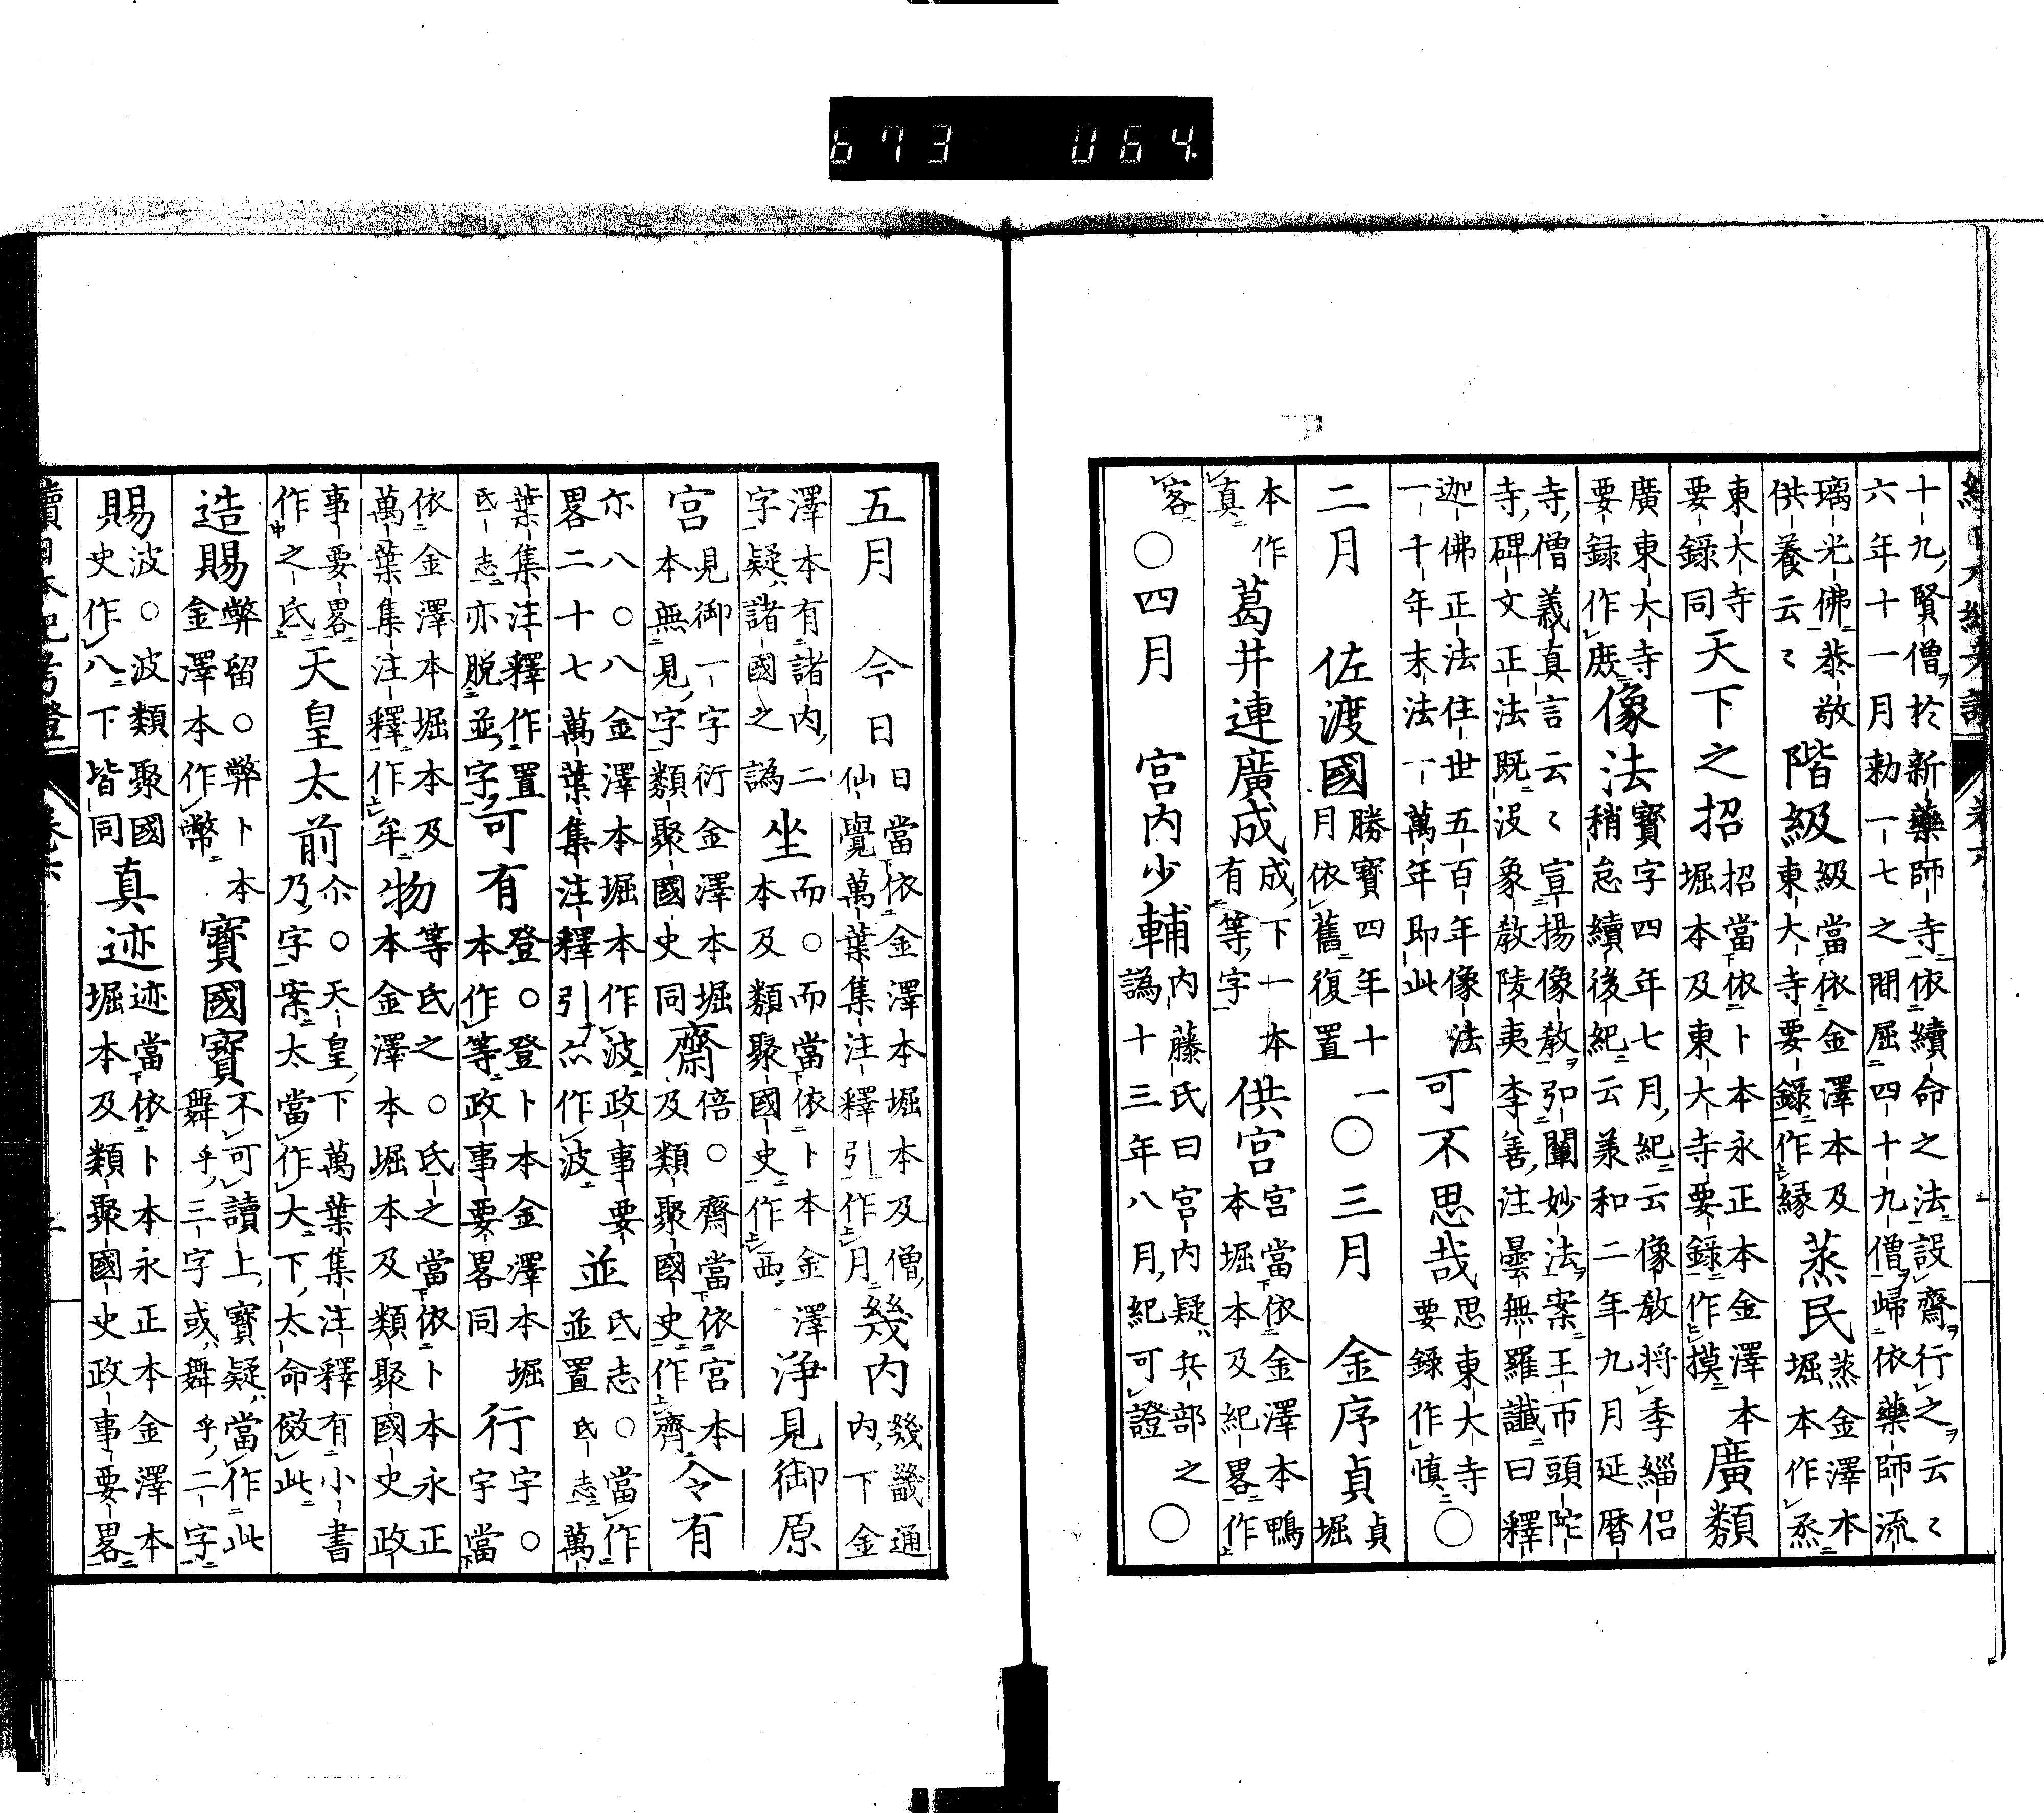 673 064
十九賢僧ヲ於新藥師寺依續命之法設齋ヲ行之ヲ云〻
六年十一月勅一七之間屈四十九僧ヲ歸依藥師流
璃光佛恭敬
供養云〻
階級
級當依金澤本及
東大寺要録作縁
蒸民
蒸金澤本
堀本作烝
東大寺
要録同
天下之招
招當依卜本永正本金澤本
堀本及東大寺要録作摸
廣類
廣東大寺
要録作庶
像法
寶字四年七月紀云像教将季緇侶
稍怠續後紀云羕和二年九月延曆
寺僧義真言云〻宣揚像教ヲ弘闡妙法ヲ案王巾頭陀
寺碑文正法既没象教陵夷李善注曇無羅讖曰釋
迦佛正法住世五百年像法
一千年末法一萬年即此
可不思哉
思東大寺
要録作慎
○
二月 佐渡國
勝寶四年十一
月依舊復置
○三月 金序貞
貞堀
本作
真
葛井連廣成
成下一本
有等字
供宮
宮當依金澤本鴨
本堀本及紀畧作
客
○四月 宮内少輔
内藤氏曰宮内疑兵部之
譌十三年八月紀可證
○
五月 今日
日當依金澤本堀本及僧
仙覺萬葉集注釋引作月
幾内
幾畿通
内下金
澤本有諸内二
字疑諸國之譌
坐
而○而當依卜本金澤
本及類聚國史作西
淨見御原
宮
見御一字衍金澤本堀
本無見字類聚國史同
齋
倍○齋當依宮本
及類聚國史作齊
令有
尒八○八金澤本堀本作波政事要
畧二十七萬葉集注釋引亦作波
並
氐志○當作
並置氐志萬
葉集注釋作置
氐志亦脱並字
可有
登○登卜本金澤本堀
本作等政事要畧同
行
宇○
宇當
依金澤本堀本及
萬葉集注釋作牟
物
等氐之○氐之當依卜本永正
本金澤本堀本及類聚國史政
事要畧
作之氐
天皇太前
尒○天皇下萬葉集注釋有小書
乃字案太當作大下太命倣此
造賜
弊留○弊卜本
金澤本作幣
寶國寶
不可讀上寶疑當作此
舞乎三字或舞乎二字
賜
波○波類聚國
史作八下皆同
真迹
迹當依卜本永正本金澤本
堀本及類聚國史政事要畧